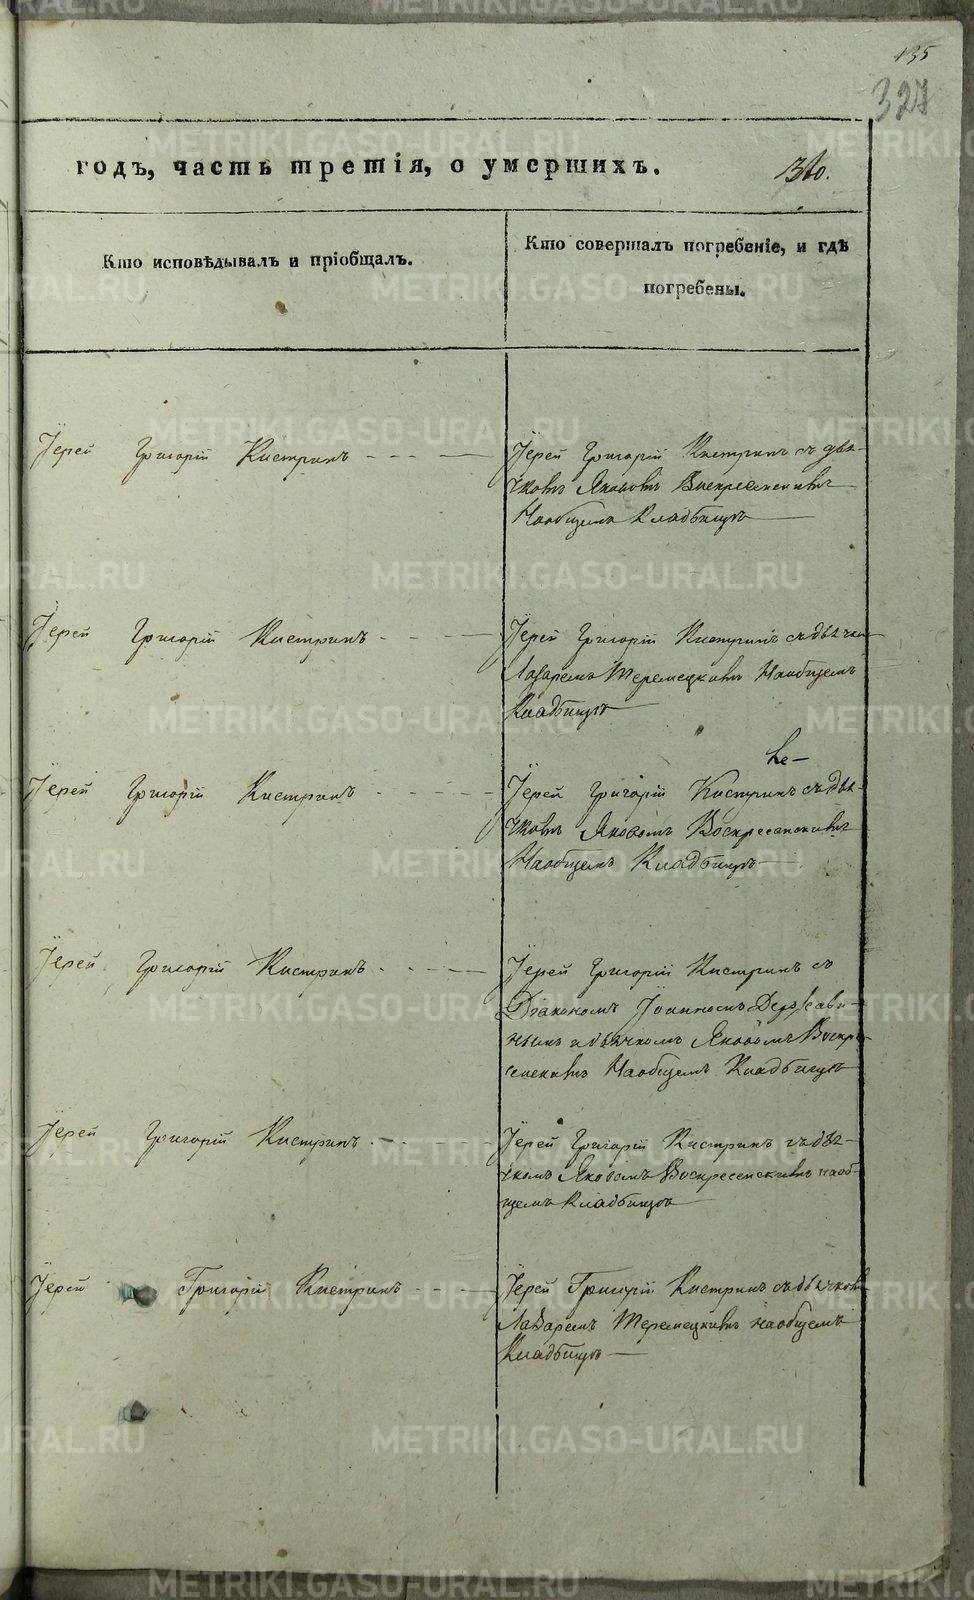 135
327
годъ, часть третія, о умершихъ.
Кто исповѣдывалъ и пріобщалъ.
Кто совершалъ погребеніе, и гдѣ
погребены.
Іерей Григорій Кистринъ
Іерей Григорій Кистринъ съ дья-
чкомъ Яковомъ Воскресенскимъ
На общемъ Кладбищѣ
Іерей Григорій Кистринъ
Іерей Григорій Кистринъ съ дьячко
Лазаремъ Теремецкимъ На общемъ
Кладбищѣ
Іерей Григорій Кистринъ
Іерей Григорій Кистринъ съ дья-
чкомъ Яковомъ Воскресенскимъ
На общемъ Кладбищѣ
Іерей Григорій Кистринъ
Іерей Григорій Кистринъ съ
Діакономъ Іоанномъ Держави-
нымъ и дьячкомъ Яковомъ Воскре-
сенскимъ На общемъ Кладбищѣ
Іерей Григорій Кистринъ
Іерей Григорій Кистринъ съ дья-
чкомъ Яковомъ Воскресенскимъ на об-
щемъ Кладбищѣ
Іерей Григорій Кистринъ
Іерей Григорій Кистринъ съ дьячком
Лазаремъ Теремецкимъ на общемъ
Кладбищѣ
METRIKI.GASO-URAL.RU